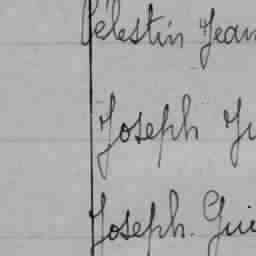 Célestin Jean
Joseph Ju
Joseph. Gui